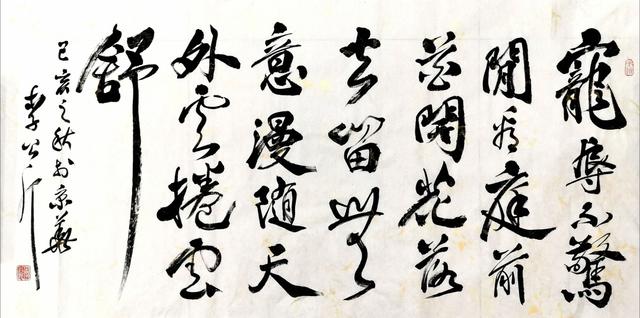 寵辱不驚
閒看庭前
花開花落
去留無
意漫随天
外雲捲雲
舒
己亥之秋於京華
李公